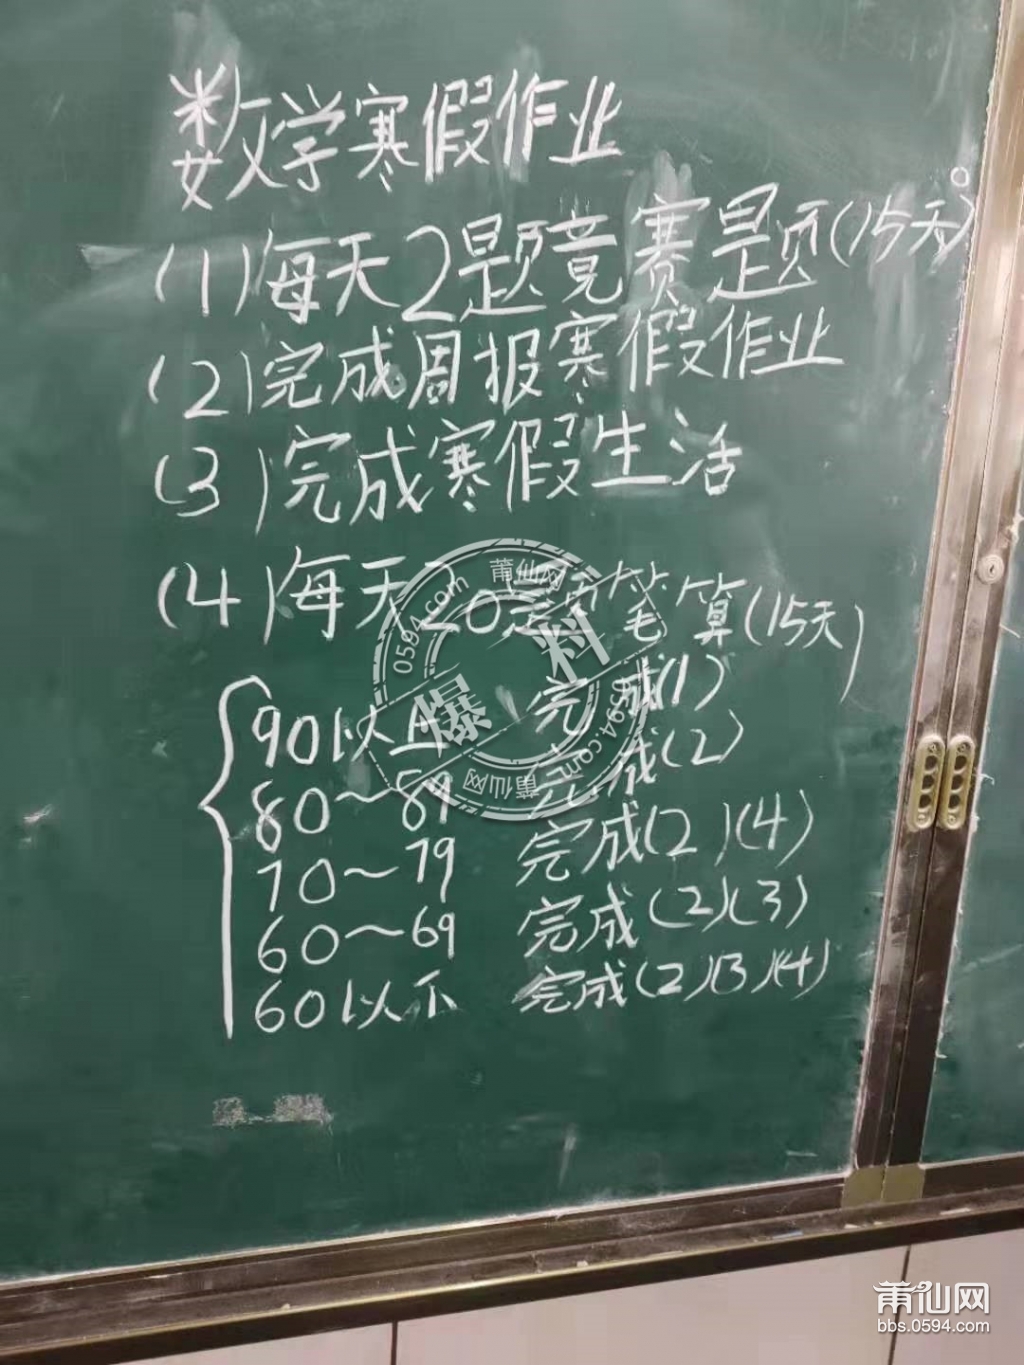 数学寒假作业
(1)每天2题竞赛题(15天)。
(2)完成周报寒假作业
(3)完成寒假生活
(4)每天20道笔算(15天)
90以上 完成(1)
80~89 完成(2)
70~79 完成(2)(4)
60~69 完成(2)(3)
60以下 完成(2)(3)(4)
莆仙网
0594.com
爆料
0594.com
莆仙网
莆仙网
bbs.0594.com